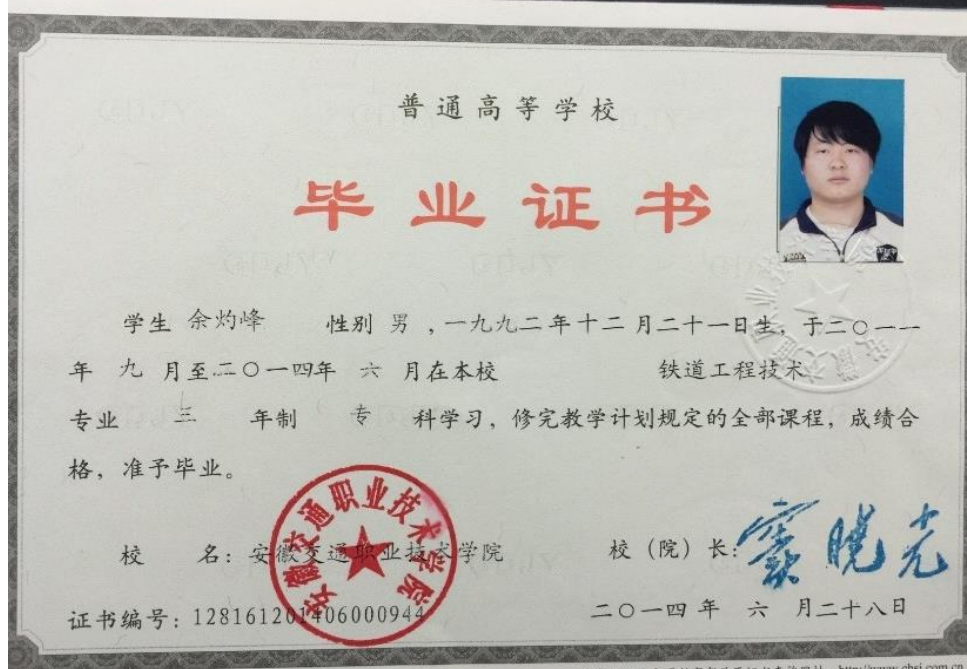 普通高等学校
毕业证书
学生 余灼峰 性别 男 ,一九九二年十二月二十一日生,于二〇一一
年 九 月至二〇一四年 六 月在本校 铁道工程技术
专业 三 年制 专 科学习,修完教学计划规定的全部课程,成绩合
格,准予毕业。
安徽交通职业技术学院
校 名:安徽交通职业技术学院 校(院)长:窦晓光
证书编号:128161201406000944 二〇一四年 六 月二十八日
http://www.chsi.com.cn